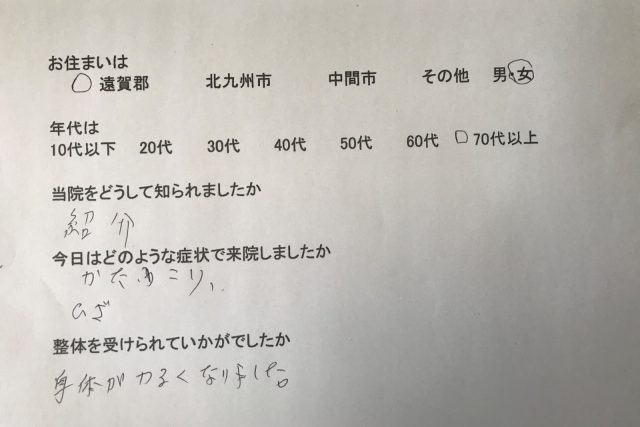 お住まいは
○遠賀郡 北九州市 中間市 その他 男・女
年代は
10代以下 20代 30代 40代 50代 60代 ○70代以上
当院をどうして知られましたか
紹介
今日はどのような症状で来院しましたか
かたのこり、
ひざ
整体を受けられていかがでしたか
身体がかるくなりました。